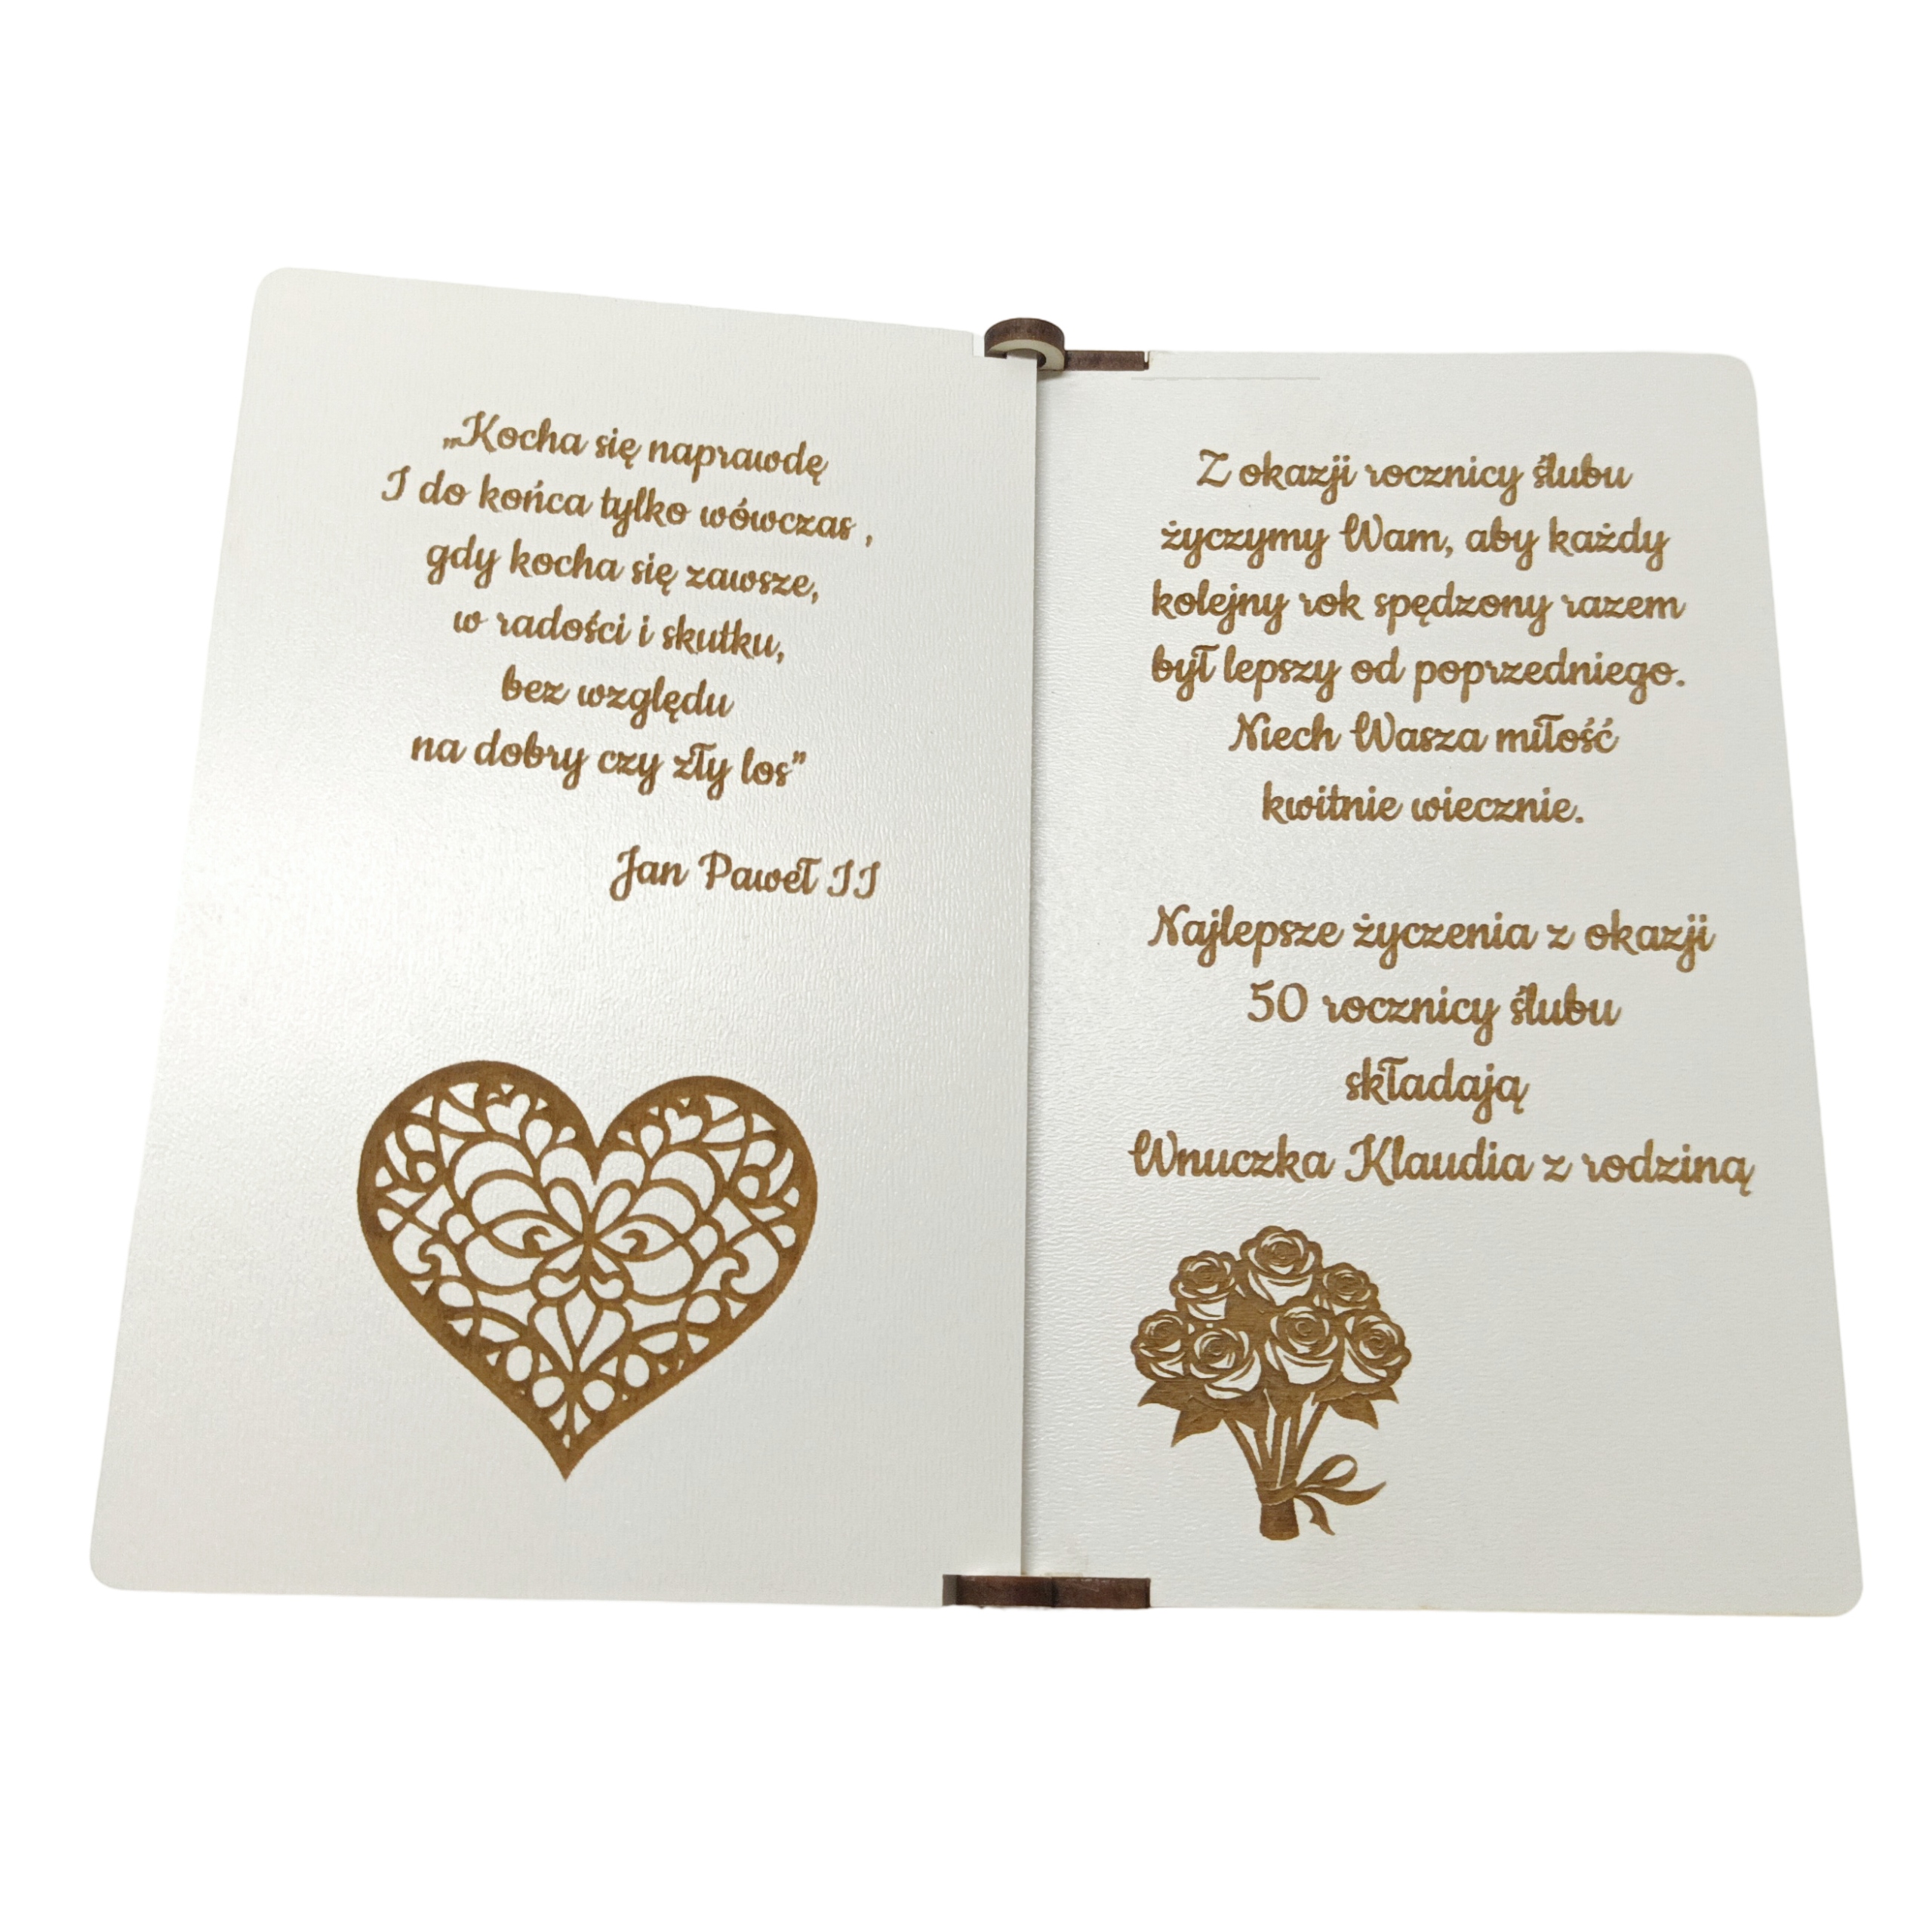 „Kocha się naprawdę
I do końca tylko wówczas ,
gdy kocha się zawsze,
w radości i skutku,
bez względu
na dobry czy zły los”
Jan Paweł II
Z okazji rocznicy ślubu
życzymy Wam, aby każdy
kolejny rok spędzony razem
był lepszy od poprzedniego.
Niech Wasza miłość
kwitnie wiecznie.
Najlepsze życzenia z okazji
50 rocznicy ślubu
składają
Wnuczka Klaudia z rodziną